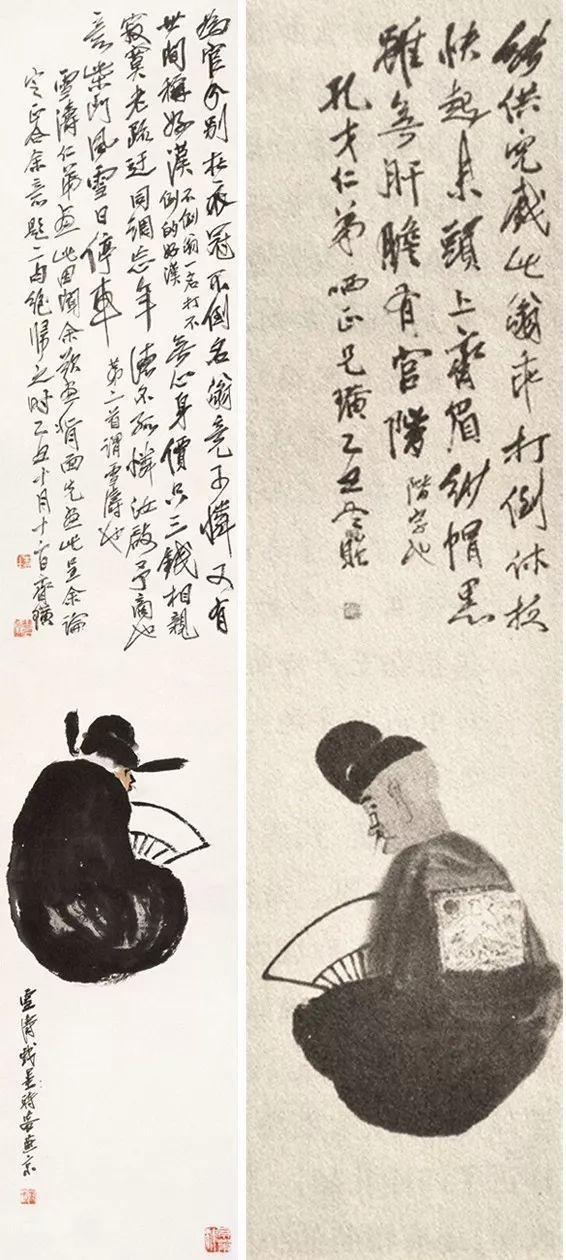 為官分别在衣冠不倒名翁竟可憐又有
世間稱好漢不倒翁一名打不倒的好漢無心身價只三錢相親
寂寞老疏迂同調忘年德不孤憐汝啟予商也
言柴門風雪日停車 第二首謂雪濤也
雪濤仁弟畫此因聞余欲畫背面先畫此呈余論
定正合余意題二占絶歸之時乙丑十月十二日齊璜
雪濤戲墨時客燕京
能供兒戲此翁乖打倒休扶
快起來頭上齊眉紗帽黑
雖無肝膽有官階 階字也
孔才仁弟哂正兄璜乙丑冬